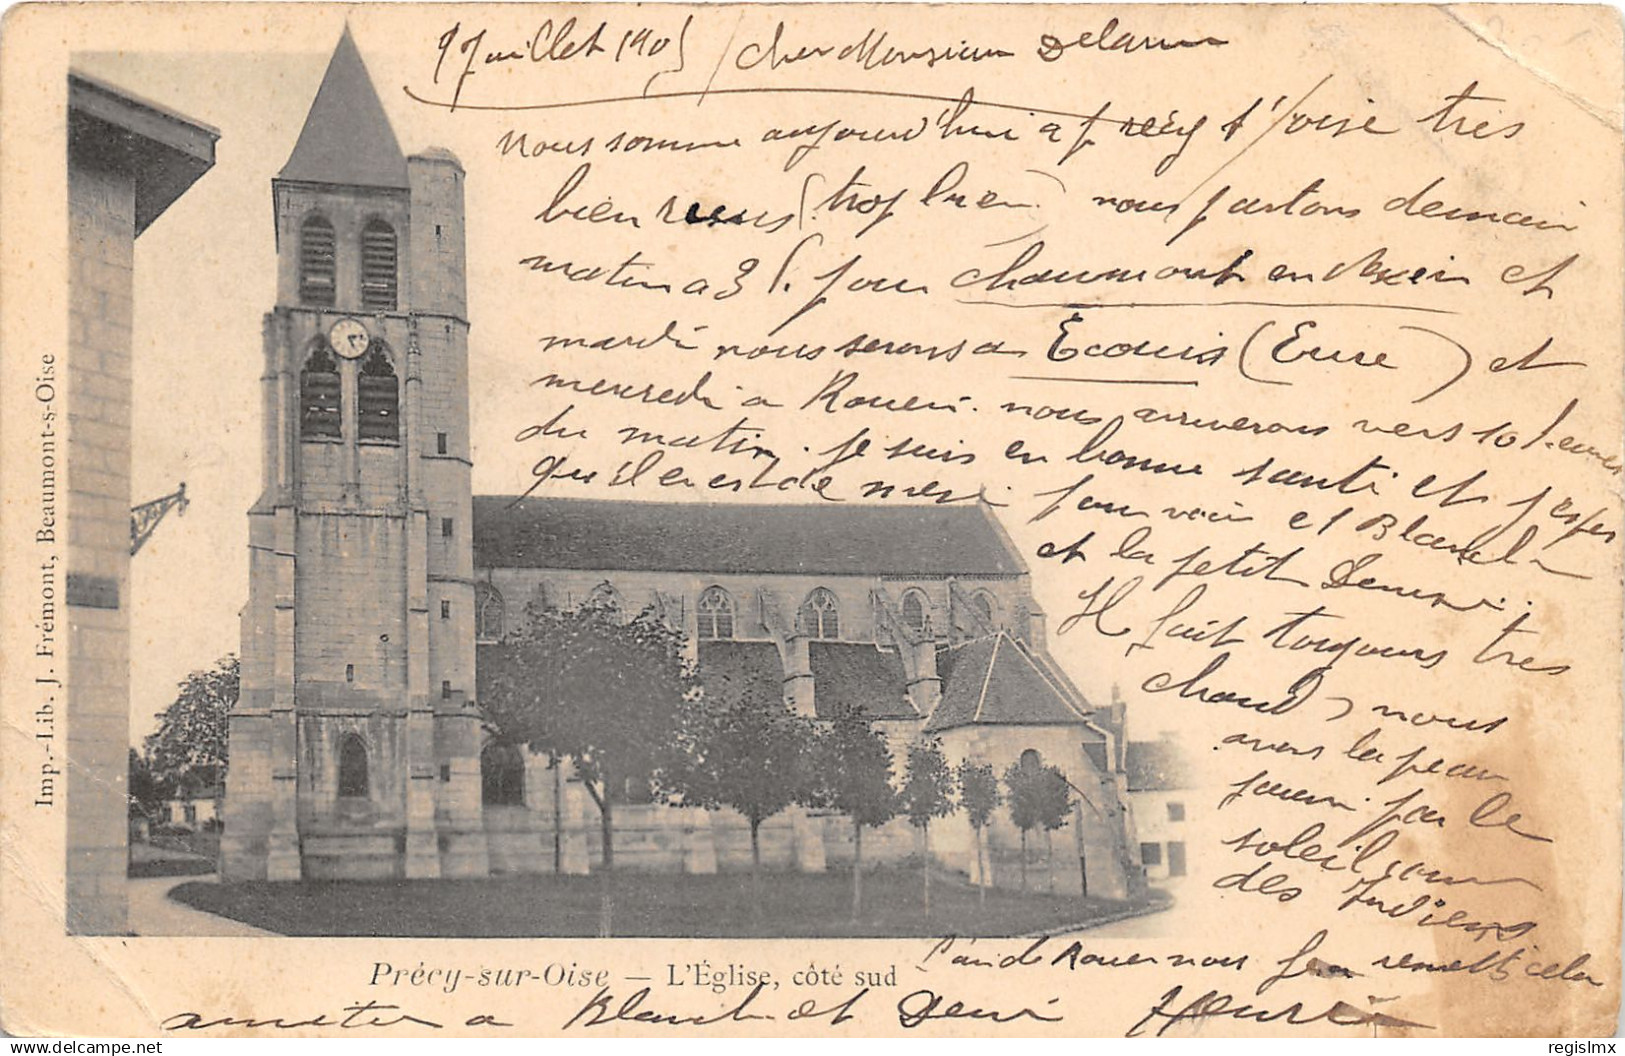 9 Juillet 1905 / cher Monsieur Delarue
nous somme aujourd'hui a précy s/oise tres
bien reçus (trop bien) nous partons demain
matin a 3 h. pour chaumont en Vexin et
mardi nous serons a Ecouis (Eure) et
mercredi a Rouen. nous arriverons vers 10 heures
du matin. je suis en bonne santé et j'espere
qu'il en est de meme pour vous et Blanche
et la petit Denise.
Il fait toujours tres
chaud, nous
avons la peau
jaune par le
soleil comme
des Indiens
l'air de Rouen nous fera remettre cela
amitie a Blanche et Denise Henri
Précy-sur-Oise — L'Église, côté sud
Imp.-Lib. J. Frémont, Beaumont-s-Oise
delcampe.net
regislmx